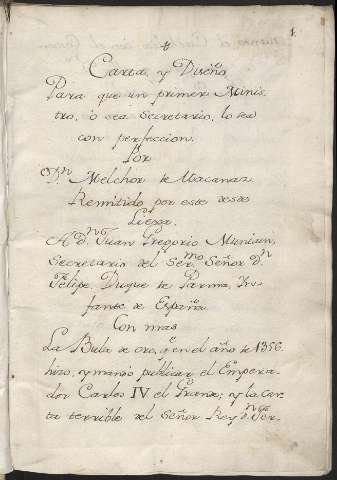 1.
Carta, y Diseño,
Para que un primer Minis-
tro, ò sea Secretario, lo sea
con perfeccion.
Por
D.n Melchor de Macanaz
Remitido por este desde
Liega.
A d.n Juan Gregorio Muniain,
Secretario del Ser.mo Señor d.n
Felipe, Duque de Parma, In-
fante de España.
Con mas
La Bula de oro, q.e en el año de 1356.
hizo, y mandò publicar el Empera-
dor Carlos IV el Grande; y la car-
ta terrible del Señor Rey d.n Fer-